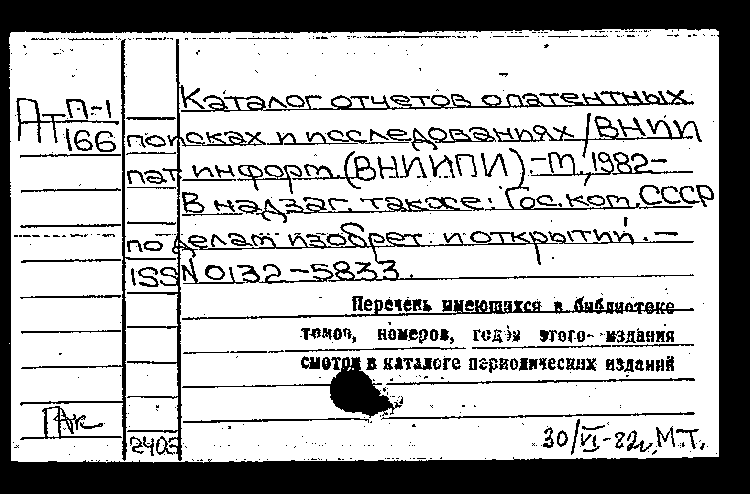 Пт П-1
166
Каталог отчетов о патентных
поисках и исследованиях / ВНИИ
пат. информ. (ВНИИПИ). - М., 1982-
В надзаг. также: Гос. ком. СССР
по делам изобрет. и открытий. -
ISSN 0132-5833.
Перечень имеющихся в библиотеке
томов, номеров, годы этого издания
смотри в каталоге периодических изданий
240
30/VI-82г. М.Т.